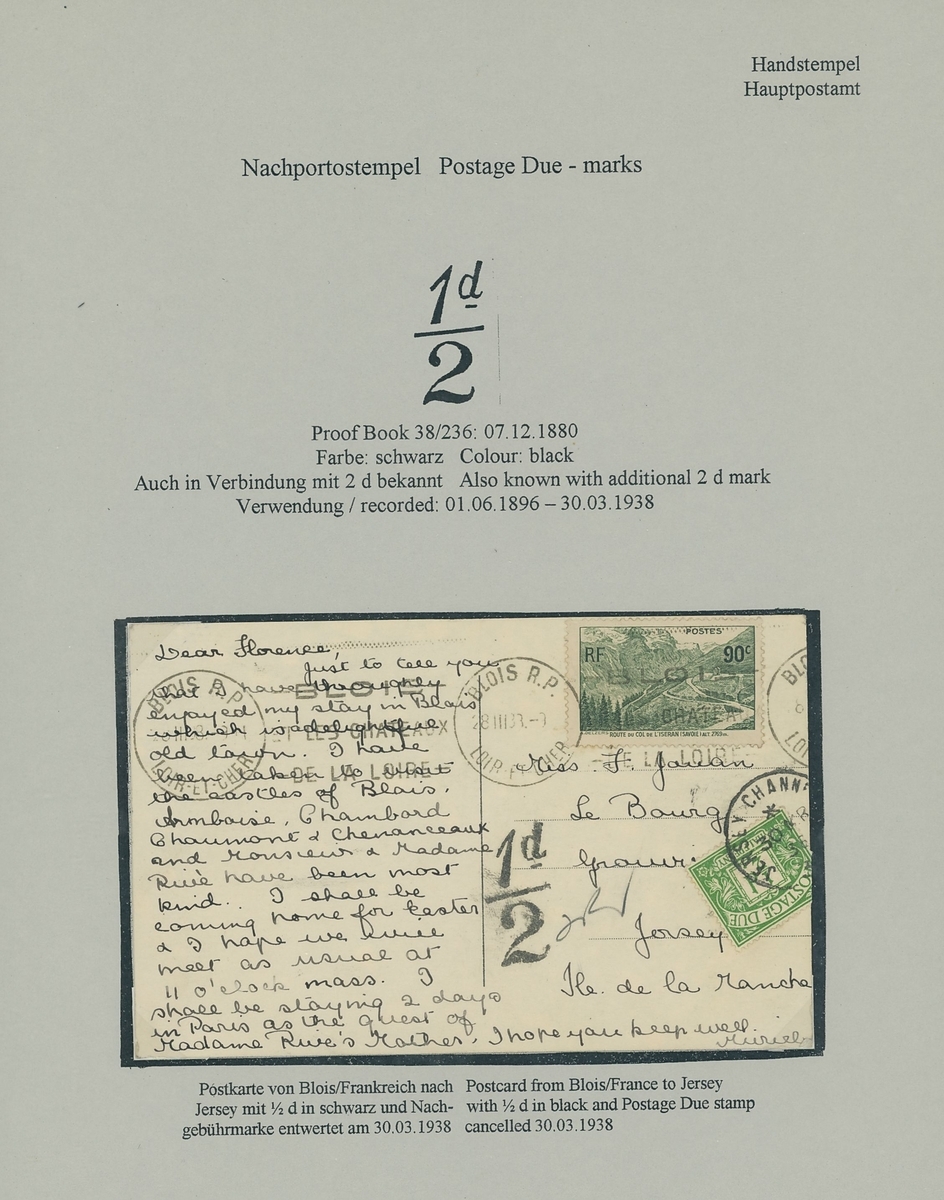 Handstempel
Hauptpostamt
Nachportostempel Postage Due - marks
1d
2
Proof Book 38/236: 07.12.1880
Farbe: schwarz Colour: black
Auch in Verbindung mit 2 d bekannt Also known with additional 2 d mark
Verwendung / recorded: 01.06.1896 – 30.03.1938
Dear Florence,
Just to tell you
that I have thoroughly
enjoyed my stay in Blois
which is a delightful
old town. I have
been taken to visit
the castles of Blois,
Amboise, Chambord
Chaumont & Chenanceaux
and Monsieur & Madame
Rivè have been most
kind. I shall be
coming home for Easter
& I hope we will
meet as usual at
11 o'clock mass. I
shall be staying 2 days
in Paris as the guest of
Madame Rive's Mother. I hope you keep well.
Muriel
BLOIS R.P.
LOIR-ET-CHER
BLOIS
ET LES CHATEAUX
DE LA LOIRE
BLOIS R.P.
28 III 38
LOIR-ET-CHER
POSTES
RF 90c
ROUTE DU COL DE L'ISERAN (SAVOIE) ALT. 2769m.
BLOIS
CHATEA
DE LA LOIRE
BLO
LOI
Miss F.
Le Bourg
Grouville
Jersey
Ile. de la Manche
1d
2
JERSEY CHANN
30
POSTAGE DUE
Postkarte von Blois/Frankreich nach
Jersey mit ½ d in schwarz und Nach-
gebührmarke entwertet am 30.03.1938
Postcard from Blois/France to Jersey
with ½ d in black and Postage Due stamp
cancelled 30.03.1938